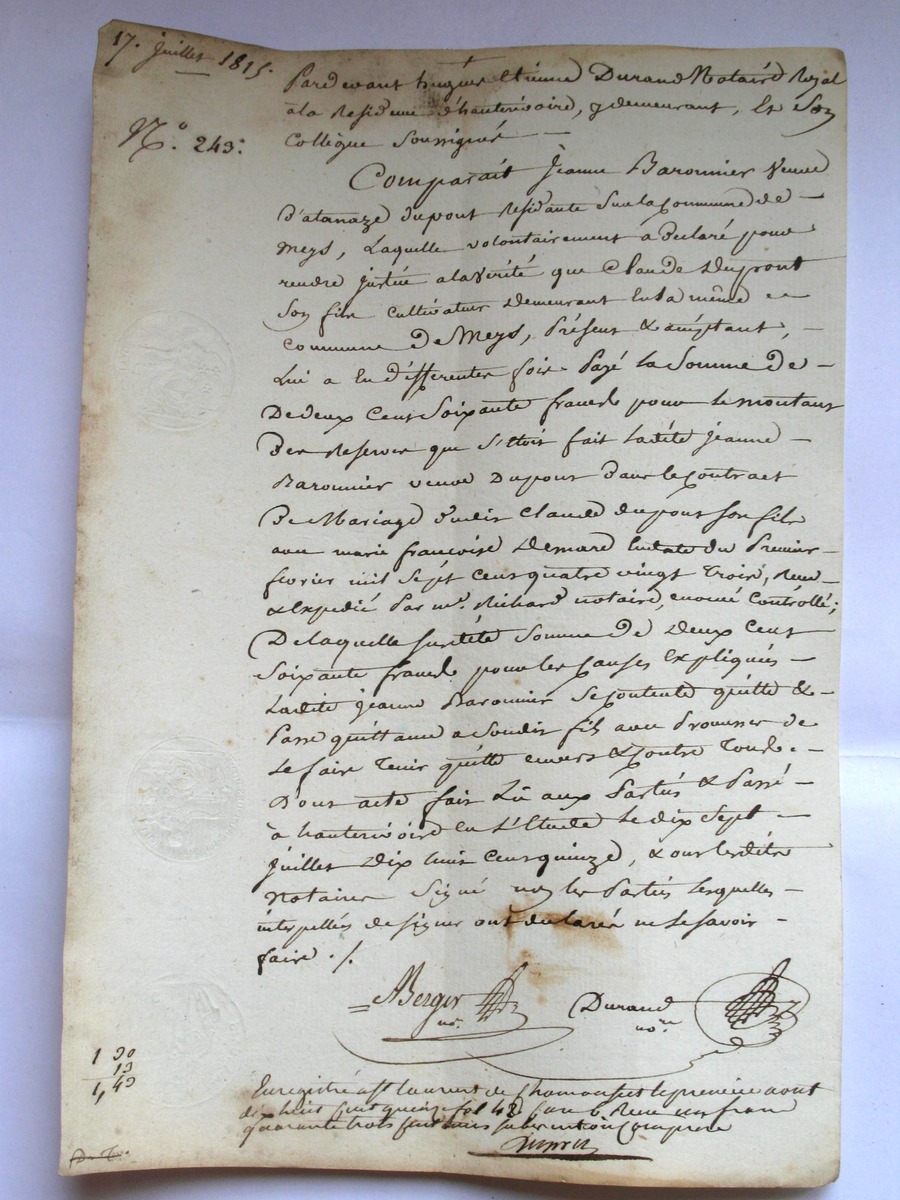 17. juillet 1815.
N.° 243.
Pardevant hugues Etienne Durand Notaire Royal
a la Residence d'hauterivoire, y demeurant, Et Son
Collègue Soussignés
Comparait Jeanne Baronnier Veuve
D'atanaze dupont Residante Sur la Commune de
Meys, Laquelle volontairement a Declaré pour
rendre justice a la Verité que Claude Dupont
Son fils Cultivateur Demeurant En la même
Commune De Meys, Présent & acceptant,
Lui a En Differentes fois Payé La Somme De
De deux Cent Soixante francs pour le montant
Des Reserves que S'étoit fait Ladite Jeanne
Baronnier veuve Dupont Dans le Contract
De Mariage dudit Claude dupont Son fils
avec marie françoise Demare En date du Premier
fevrier mil Sept Cent quatre vingt Trois, Reçu
& Expedié Par me. Richard notaire, Controllé;
De laquelle Susditte Somme De Deux Cent
Soixante francs pour les Causes Expliqués
Ladite Jeanne Baronnier Se Contente quitte &
Passe quittance a Sondit fils avec Promesse de
Le faire Tenir quitte envers & Contre Tous.
Dont acte fait Lû aux Parties & Passé
à hauterivoire En L'Etude Le dix Sept
juillet Dix huit Cent quinze, & ont lesdits
Notaires Signé non les Parties Lesquelles
interpellés de Signer ont declaré ne Le Savoir
faire ./.
Berger
no.re
Durand
no.re
1 30
13
1,43
Enregistré a St Laurent de Chamousset le premier aout
dix huit Cent quinze fol 48 Case 6 Reçu un franc
quarante trois Centimes subvention Comprise